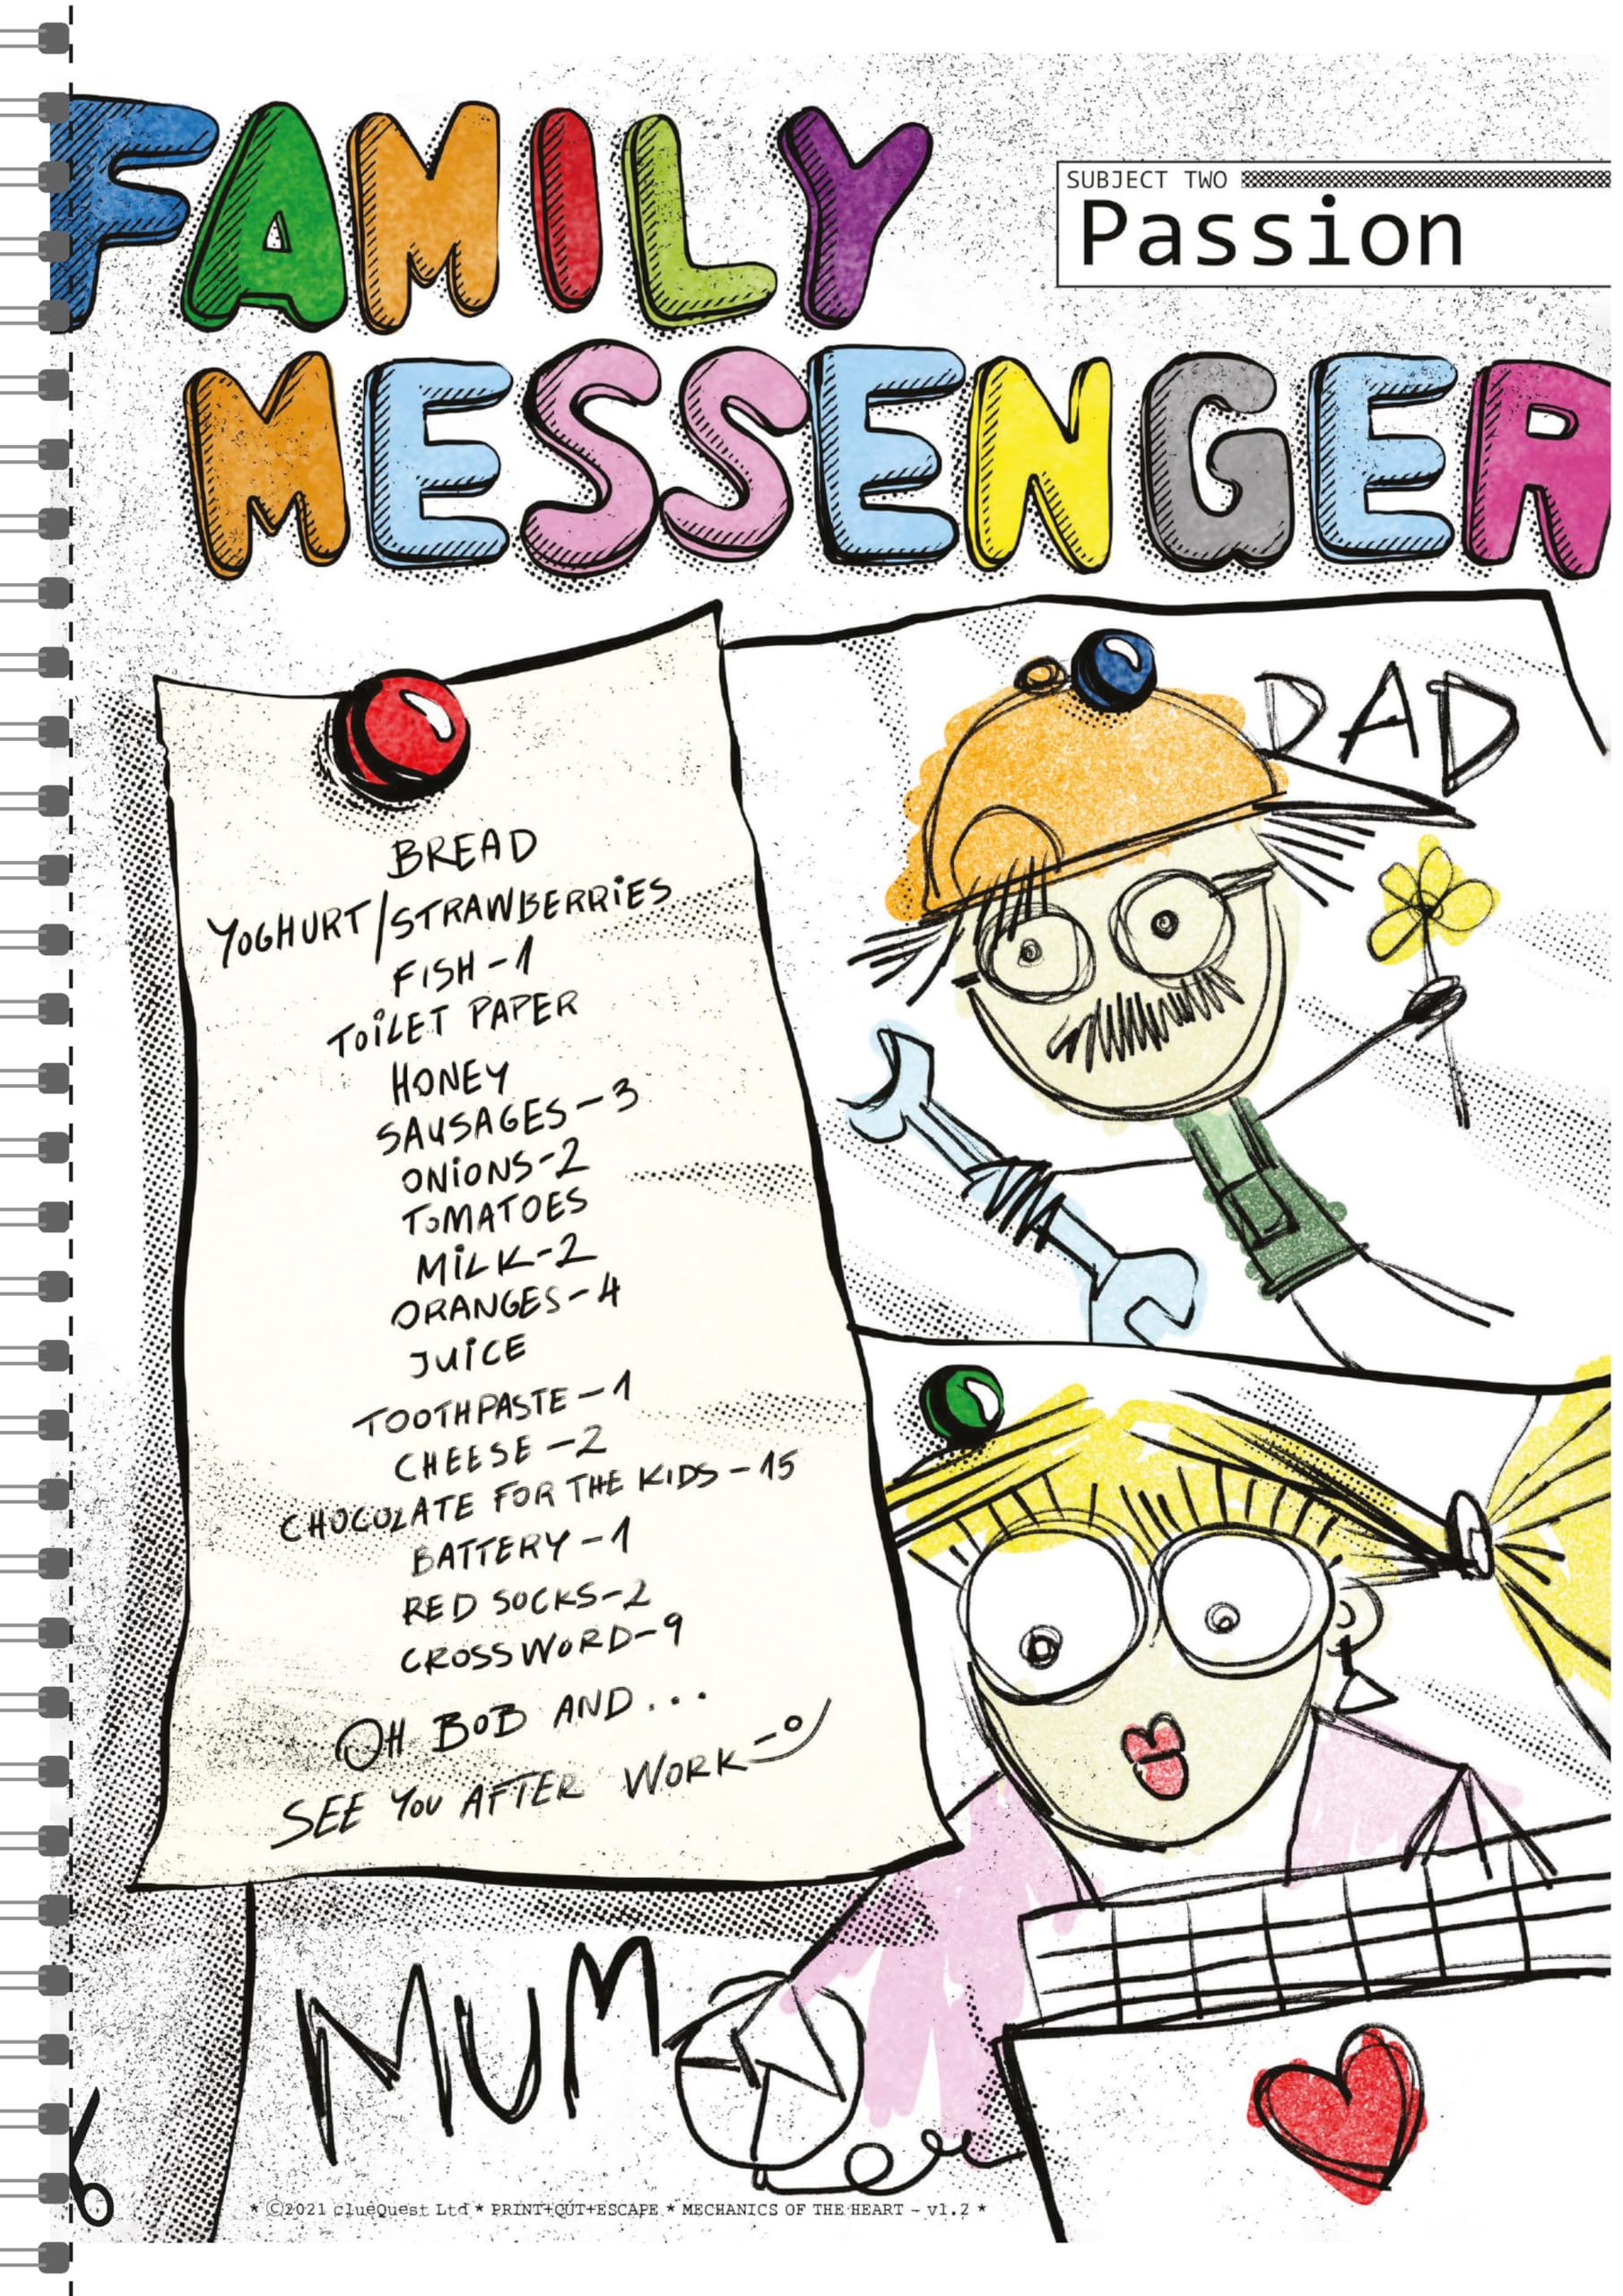 FAMILY
MESSENGER
SUBJECT TWO
Passion
BREAD
YOGHURT/STRAWBERRIES
FISH-1
TOILET PAPER
HONEY
SAUSAGES-3
ONIONS-2
TOMATOES
MILK-2
ORANGES-4
JUICE
TOOTHPASTE-1
CHEESE-2
CHOCOLATE FOR THE KIDS-15
BATTERY-1
RED SOCKS-2
CROSSWORD-9
OH BOB AND...
SEE YOU AFTER WORK
DAD
MUM
* ©2021 clueQuest Ltd * PRINT+CUT+ESCAPE * MECHANICS OF THE HEART - v1.2 *